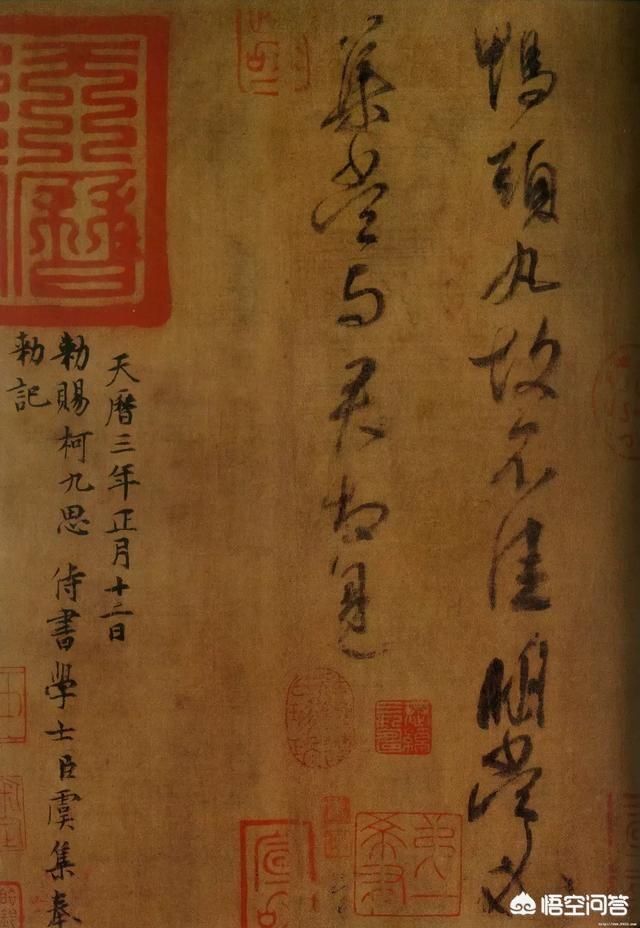 鴨頭丸故不佳明當必
集當与君相見
天曆三年正月十二日
勑賜柯九思侍書學士臣虞集奉
勑記
天曆
悟空问答